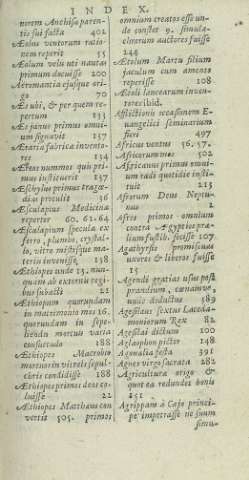 INDEX.
norem Anchisæ paren-
tis sui facta 402
Æolus ventorum ratio-
nem reperit 55
Æolum velu uti nautas
primum docuisse 200
Aëromantia ejusque ori-
go 70
Æs ubi, & per quem re-
pertum 133
Æs panus primus omni-
um signavit 157
Æraria fabrica invento-
res 134
Æreus nummos quis pri-
mus instituerit 157
Æschylus primus tragœ-
dias proculit 36
Æsculapius Medicinæ
reperter 60. 61. 64
Æsculapium specula ex
ferro, plumbo, crystal-
lo, vitro mistisque ma-
teriis invenisse, 138
Æthiopes unde 13. nun-
quam ab externis regi-
bus subacti 22
Æthiopum quorundam
in matrimonio mos 16.
quorundam in sepe-
liendis mortuis varia
consuetudo 188
Æthiopes Macrobii
mortuorum vitreis sepul-
chris condidisse 188
Æthiopes primos deos co-
luisse 22
Æthiopes Matthæus con
vertit 505. primos
omnium creatos esse un-
de constet 9. simula-
chrorum auctores fuisse
144
Ætolum Martis filium
jaculum cum amento
reperisse 108
Ætoli lancearum inven-
tores ibid.
Afflictionis occasionem E-
vangelicæ seminarium
fieri 497
Africus ventus 56. 57.
Africorum mos 502
Africanus primus omni-
um radi quotidie insti-
tuit 213
Afrorum Deus Neptu-
nus 2
Afros primos omnium
contra Ægyptios præ-
lium fustib. fecisse 107.
Agathyrsi promiscuas
uxores & liberos fuisse
15
Agendi gratias usus post
prandium, cœnamve,
unde deductus 389
Agesilaus sextus Lacedæ-
moniorum Rex 82
Agesilai dictum 100
Aglaophon pictor 148
Agonalia festa 391
Agnes virgo sacrata 282
Agricultura origo &
quot ea redundet bonis
251
Agrippam à Cajo princi-
pe impetrasse ne suum
simu-